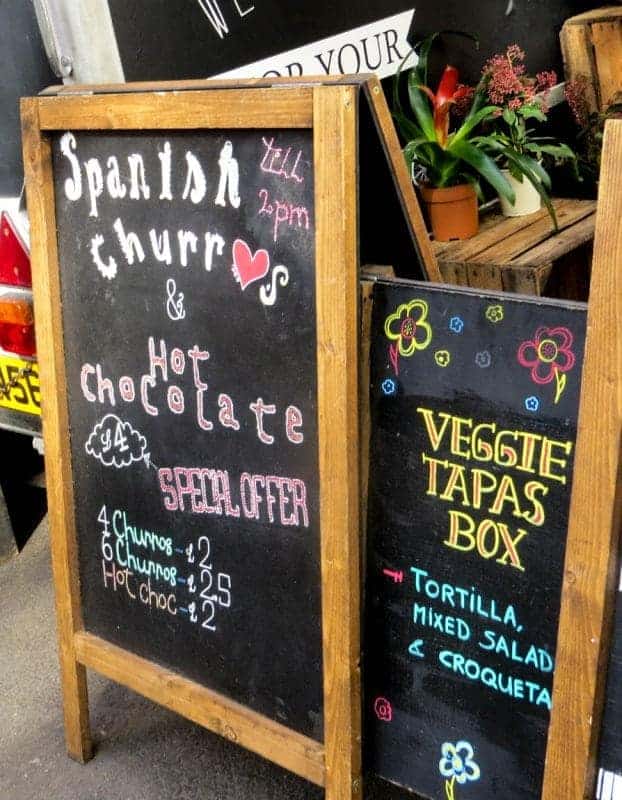 WE
OR YOUR
Spanish
churr♥s
&
YELL
2pm
Hot
Chocolate
£4
SPECIAL OFFER
4 Churros - £2
6 Churros - £2.5
Hot choc - £2
VEGGIE
TAPAS
BOX
TORTILLA,
MIXED SALAD
& CROQUETA